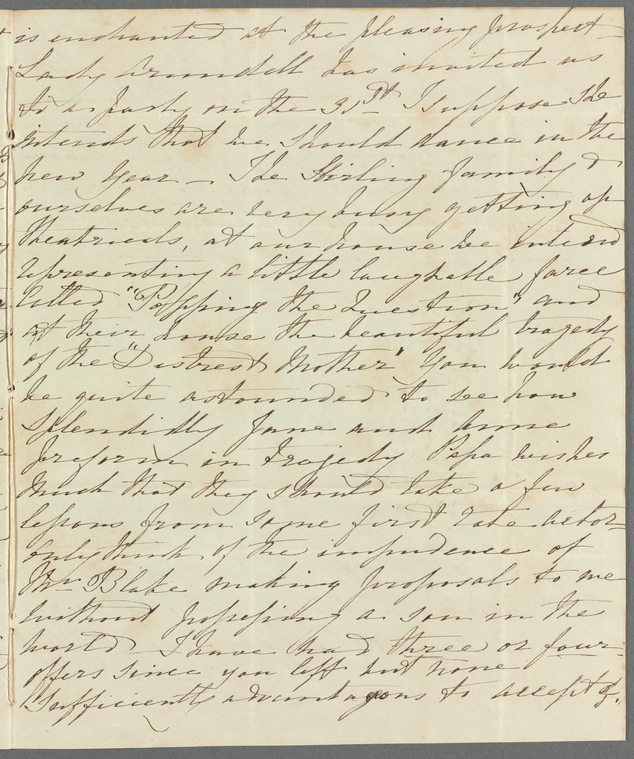 is enchanted at the pleasing prospect
Lady Arundell has invited us
to a party on the 31st I suppose she
intends that we should dance in the
New Year — The Stirling family &
ourselves are very busy getting up
theatricals, at our house we intend
representing a little laughable farce
called "Popping the Question" and
at their house the beautiful tragedy
of the "Distrest Mother" You would
be quite astounded to see how
splendidly Jane and Anne
preform in tragedy Papa wishes
much that they should take a few
lessons from some first rate actor
only think of the impudence of
Mr Blake making proposals to me
without possessing a sou in the
world I have had three or four
offers since you left but none
sufficiently advantageous to accept of.